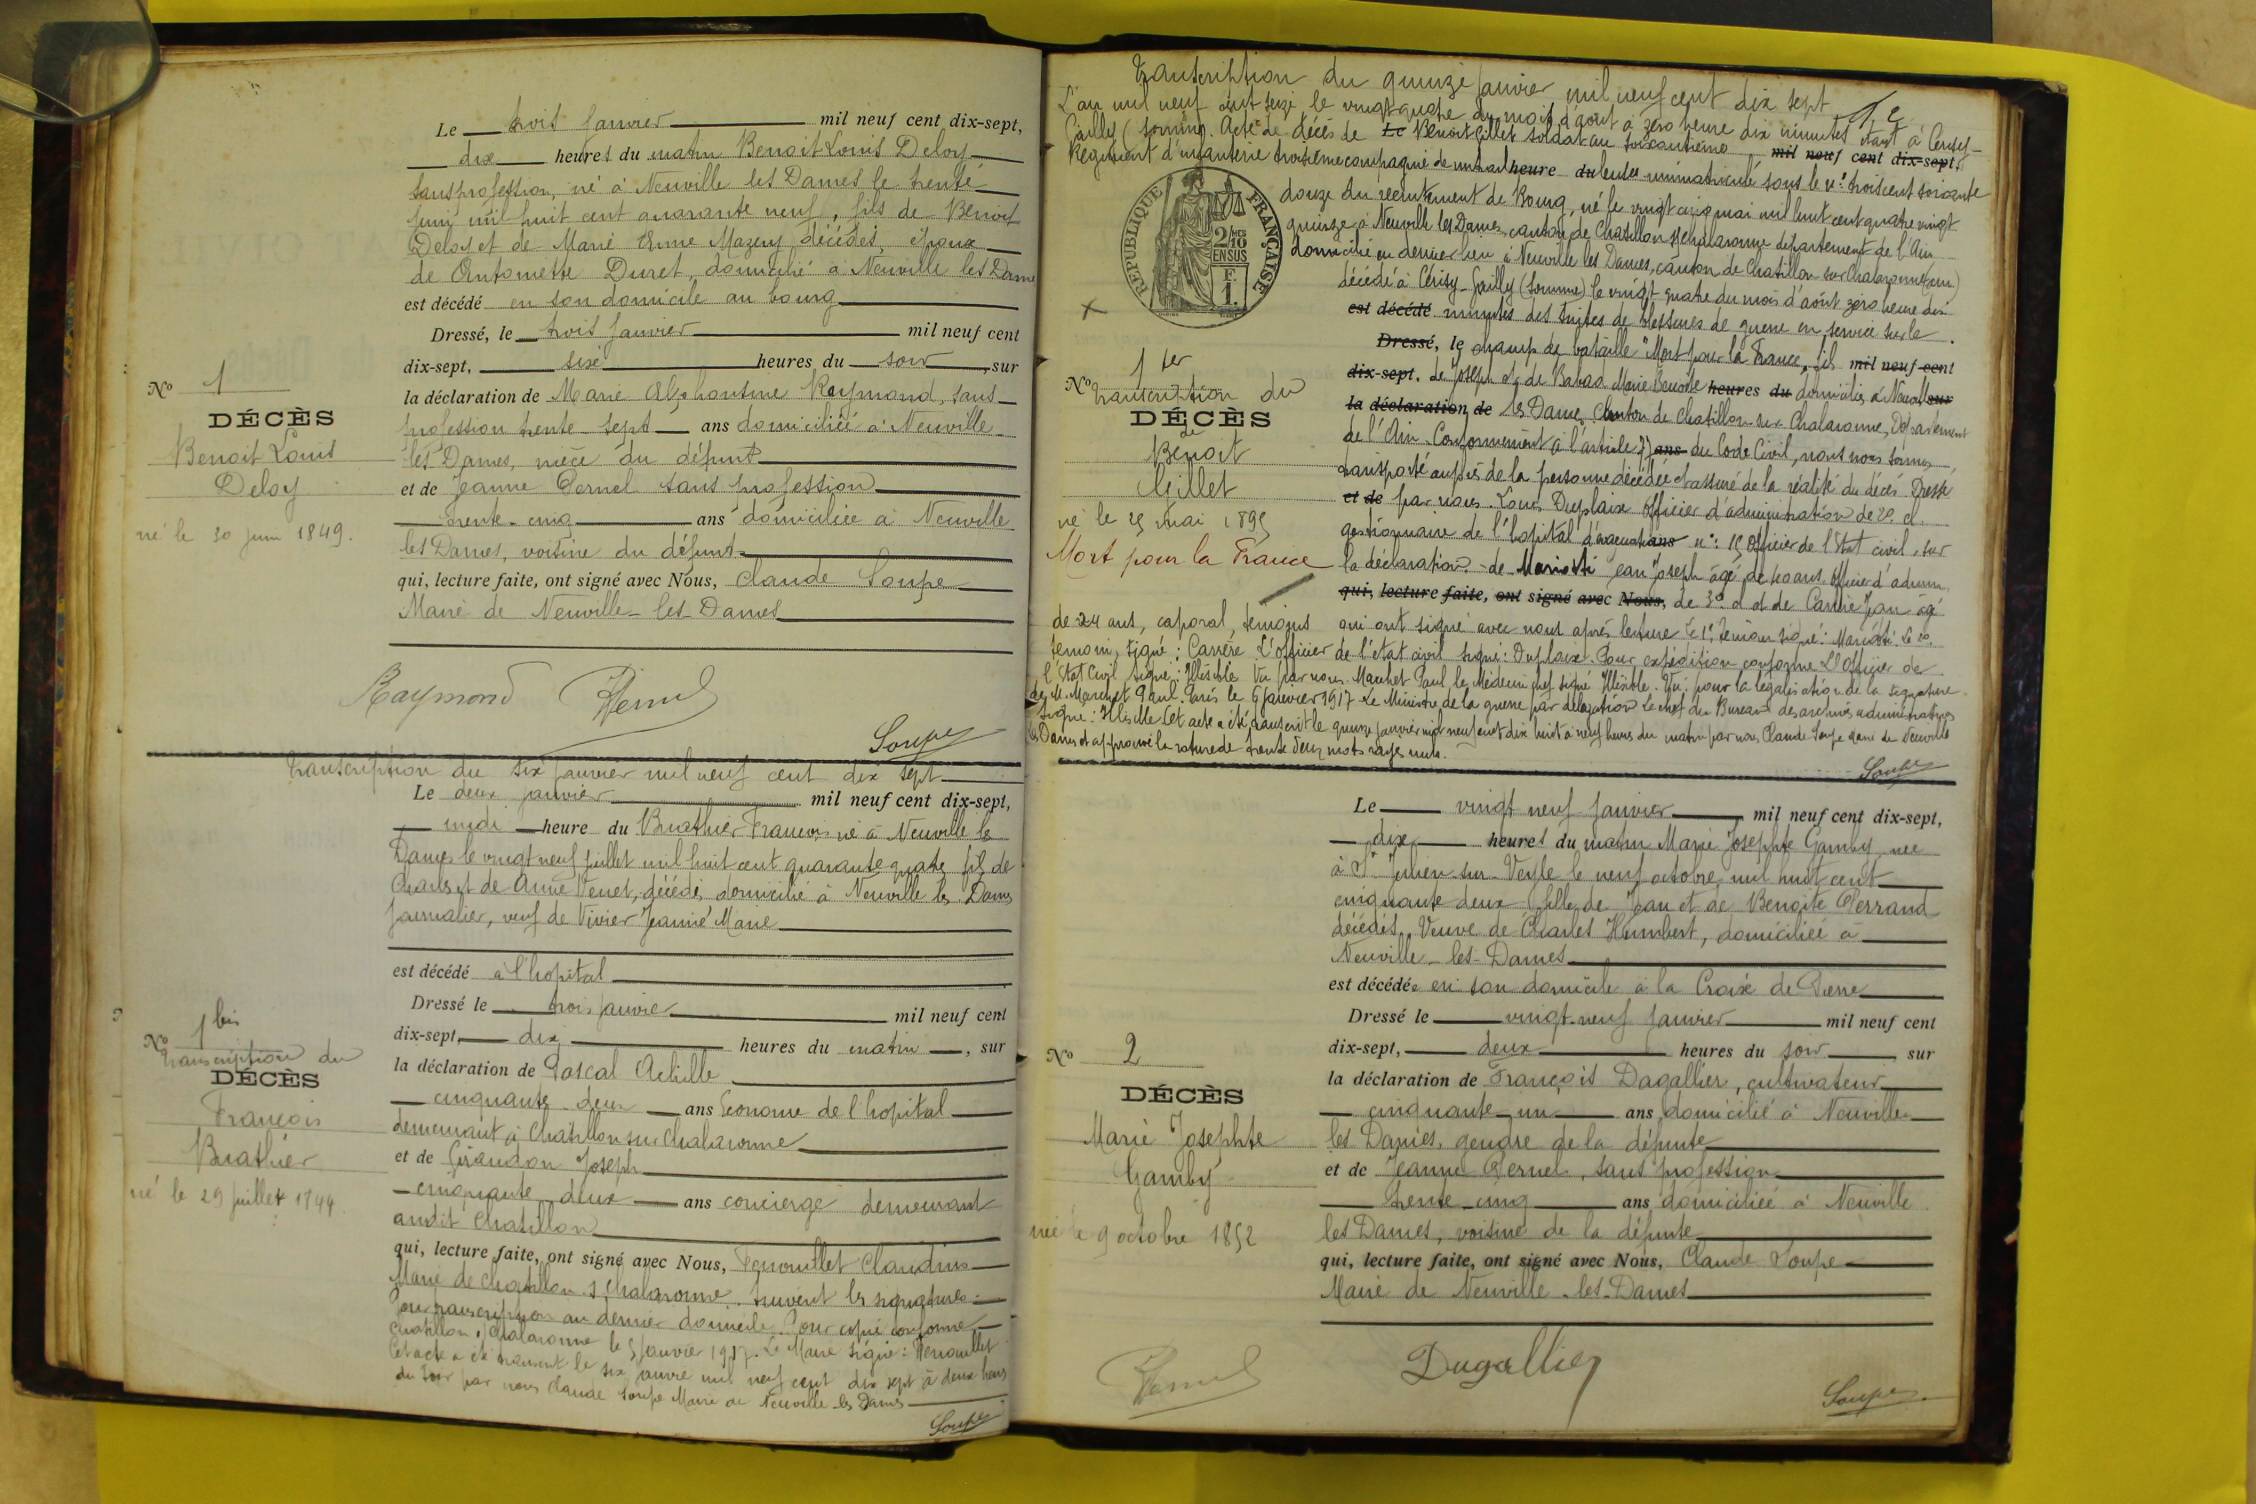 Le trois janvier mil neuf cent dix-sept,
dix heures du matin Benoit Louis Deloy
sans profession, né à Neuville les Dames le trente
juin mil huit cent quarante neuf, fils de Benoit
Deloy et de Marie Anne Mazeny décédés, époux
de Antoinette Duret, domicilié à Neuville les Dames
est décédé en son domicile au bourg
Dressé, le trois janvier mil neuf cent
dix-sept, six heures du soir, sur
la déclaration de Marie Alphonsine Raymond, sans
profession trente sept ans domiciliée à Neuville
les Dames, nièce du défunt
et de Jeanne Pernel sans profession
trente-cinq ans domiciliée à Neuville
les Dames, voisine du défunt
qui, lecture faite, ont signé avec Nous, Claude Soupe
Maire de Neuville-les-Dames
Raymond Pernel
Soupe
No 1
DÉCÈS
Benoit Louis
Deloy
né le 30 juin 1849.
Transcription du six janvier mil neuf cent dix sept
Le deux janvier mil neuf cent dix-sept,
midi heure du Buathier François né à Neuville les
Dames le vingt neuf juillet mil huit cent quarante quatre fils de
Charles et de Anne Venet, décédés, domicilié à Neuville les Dames
journalier, veuf de Vivier Jeanne Marie
est décédé à l'hopital
Dressé le trois janvier mil neuf cent
dix-sept, dix heures du matin, sur
la déclaration de Pascal Achille
cinquante deux ans Econome de l'hopital
demeurant à Chatillon sur Chalaronne
et de Giraudon Joseph
cinquante deux ans concierge demeurant
audit Chatillon
qui, lecture faite, ont signé avec Nous, Fenouillet Claudius
Maire de Chatillon s Chalaronne. Suivent les signatures.
Pour transcription au dernier domicile. Pour copie conforme
Chatillon s Chalaronne le 5 janvier 1917. Le Maire signé: Fenouillet
Cet acte a été transcrit le six janvier mil neuf cent dix sept à deux heures
du soir par nous Claude Soupe Maire de Neuville-les Dames
Soupe
No 1 bis
transcription du
DÉCÈS
François
Buathier
né le 29 juillet 1744
Transcription du quinze janvier mil neuf cent dix sept
L'an mil neuf cent seize, le vingt quatre du mois d'août à zéro heure dix minutes étant à Cerisy-
Gailly (Somme). Acte de décès de Le Benoit Gillet soldat au soixantième mil neuf cent dix-sept,
Régiment d'infanterie troisième compagnie de mitrailleuses heure du immatriculé sous le n°: trois cent soixante
douze du recrutement de Bourg, né le vingt cinq mai mil huit cent quatre vingt
quinze à Neuville les Dames, canton de Chatillon s/Chalaronne département de l'Ain
domicilié en dernier lieu à Neuville les Dames, canton de Chatillon sur Chalaronne (Ain)
décédé à Cérisy-Gailly (Somme) le vingt-quatre du mois d'août zéro heure dix
est décédé minutes des suites de blessures de guerre en service sur le
Dressé, le champ de bataille "Mort pour la France, fils mil neuf cent
dix-sept, de Joseph et de Marie Benoite heures du domiciliés à Neuville sur
la déclaration de les Dames, Canton de Chatillon sur Chalaronne, Département
de l'Ain. Conformément à l'article 77 ans du Code Civil, nous nous sommes
transporté auprès de la personne décédée et assuré de la réalité du décès. Dressé
et de par nous. Louis Duplaix officier d'administration de 2e. cl.
gestionnaire de l'hopital d'évacuation ans n°: 15 Officier de l'Etat civil, sur
la déclaration de Mariotti Jean Joseph âgé de 40 ans officier d'admin
qui, lecture faite, ont signé avec Nous, de 3e. cl et de Carrère Jean âgé
de 24 ans, caporal, témoins qui ont signé avec nous après lecture. Le 1er témoin signé: Mariotti. Le 2e.
témoin, signé: Carrère. L'officier de l'état civil signé: Duplaix. Pour expédition conforme L'Officier de
l'Etat Civil signé: Illisible. Vu par nous. Marchet Paul le Médecin chef signé Illisible. Vu: pour la légalisation de la signature
de M. Marchet Paul. Paris le 6 janvier 1917. Le Ministre de la guerre par délégation Le chef du Bureau des archives administratives
signé: Illisible. Cet acte a été transcrit le quinze janvier mil neuf cent dix huit à neuf heures du matin par nous Claude Soupe Maire de Neuville
les Dames et approuvé la rature de trente deux mots rayés nuls.
Soupe
No 1 ter
transcription du
DÉCÈS
de
Benoit
Gillet
né le 25 mai 1895
Mort pour la France
REPUBLIQUE FRANÇAISE
2/10 EN SUS
F 1.
Le vingt neuf janvier mil neuf cent dix-sept,
dix heures du matin Marie Josephte Gamby née
à St Julien-sur-Veyle le neuf octobre mil huit cent
cinquante deux fille de Jean et de Benoite Perrand
décédés. Veuve de Charles Humbert, domiciliée à
Neuville-les-Dames
est décédée en son domicile à la Croix de Pierre
Dressé le vingt-neuf janvier mil neuf cent
dix-sept, deux heures du soir, sur
la déclaration de François Dagallier, cultivateur
cinquante-un ans domicilié à Neuville-
les Dames, gendre de la défunte
et de Jeanne Pernel, sans profession
trente-cinq ans domiciliée à Neuville
les Dames, voisine de la défunte
qui, lecture faite, ont signé avec Nous, Claude Soupe
Maire de Neuville-les-Dames
Pernel Dagallier
Soupe
No 2
DÉCÈS
Marie Josephte
Gamby
née le 9 octobre 1852